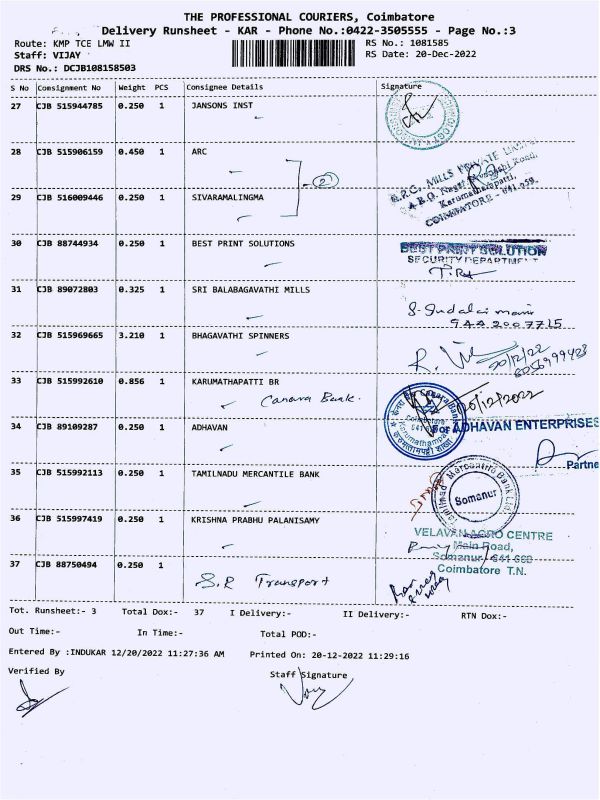 THE PROFESSIONAL COURIERS, Coimbatore
Delivery Runsheet - KAR - Phone No.:0422-3505555 - Page No.:3
Route: KMP TCE LMW II
RS No.: 1081585
Staff: VIJAY
RS Date: 20-Dec-2022
DRS No.: DCJB108158503
S No Consignment No Weight PCS Consignee Details Signature
27 CJB 515944785 0.250 1 JANSONS INST
28 CJB 515906159 0.450 1 ARC
2
MILLS PRIVATE
29 CJB 516009446 0.250 1 SIVARAMALINGMA
Karumathampatti,
COIMBATORE - 641 659.
30 CJB 88744934 0.250 1 BEST PRINT SOLUTIONS
BEST PRINT SOLUTION
SECURITY DEPARTMENT
31 CJB 89072803 0.325 1 SRI BALABAGAVATHI MILLS
32 CJB 515969665 3.210 1 BHAGAVATHI SPINNERS
20/12/22
33 CJB 515992610 0.856 1 KARUMATHAPATTI BR
Canara Bank.
20/12/2022
34 CJB 89109287 0.250 1 ADHAVAN
For ADHAVAN ENTERPRISES
Partne
35 CJB 515992113 0.250 1 TAMILNADU MERCANTILE BANK
Somanur
36 CJB 515997419 0.250 1 KRISHNA PRABHU PALANISAMY
VELAVAN AGRO CENTRE
Main Road,
Somanur - 641 668
Coimbatore T.N.
37 CJB 88750494 0.250 1
S.R Transport
Tot. Runsheet:- 3 Total Dox:- 37 I Delivery:- II Delivery:- RTN Dox:-
Out Time:- In Time:- Total POD:-
Entered By :INDUKAR 12/20/2022 11:27:36 AM Printed On: 20-12-2022 11:29:16
Verified By Staff Signature